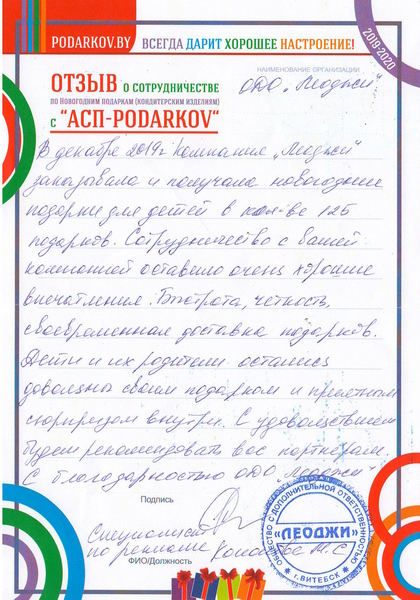 PODARKOV.BY
ВСЕГДА ДАРИТ ХОРОШЕЕ НАСТРОЕНИЕ!
2019-2020
НАИМЕНОВАНИЕ ОРГАНИЗАЦИИ
ОДО „Леоджи“
ОТЗЫВ О СОТРУДНИЧЕСТВЕ
ПО НОВОГОДНИМ ПОДАРКАМ (КОНДИТЕРСКИМ ИЗДЕЛИЯМ)
С "АСП-PODARKOV"
В декабре 2019г компания „Леоджи“
заказывала и получала новогодние
подарки для детей в кол-ве 125
подарков. Сотрудничество с Вашей
компанией оставило очень хорошие
впечатления. Быстрота, четкость,
своевременная доставка подарков.
Дети и их родители остались
довольны своим подарком и приятным
сюрпризом внутри. С удовольствием
будем рекомендовать вас партнерам.
С благодарностью ОДО Леоджи"
Подпись
Специалист
по рекламе
ФИО/Должность
ОБЩЕСТВО С ДОПОЛНИТЕЛЬНОЙ ОТВЕТСТВЕННОСТЬЮ
«ЛЕОДЖИ»
г. ВИТЕБСК